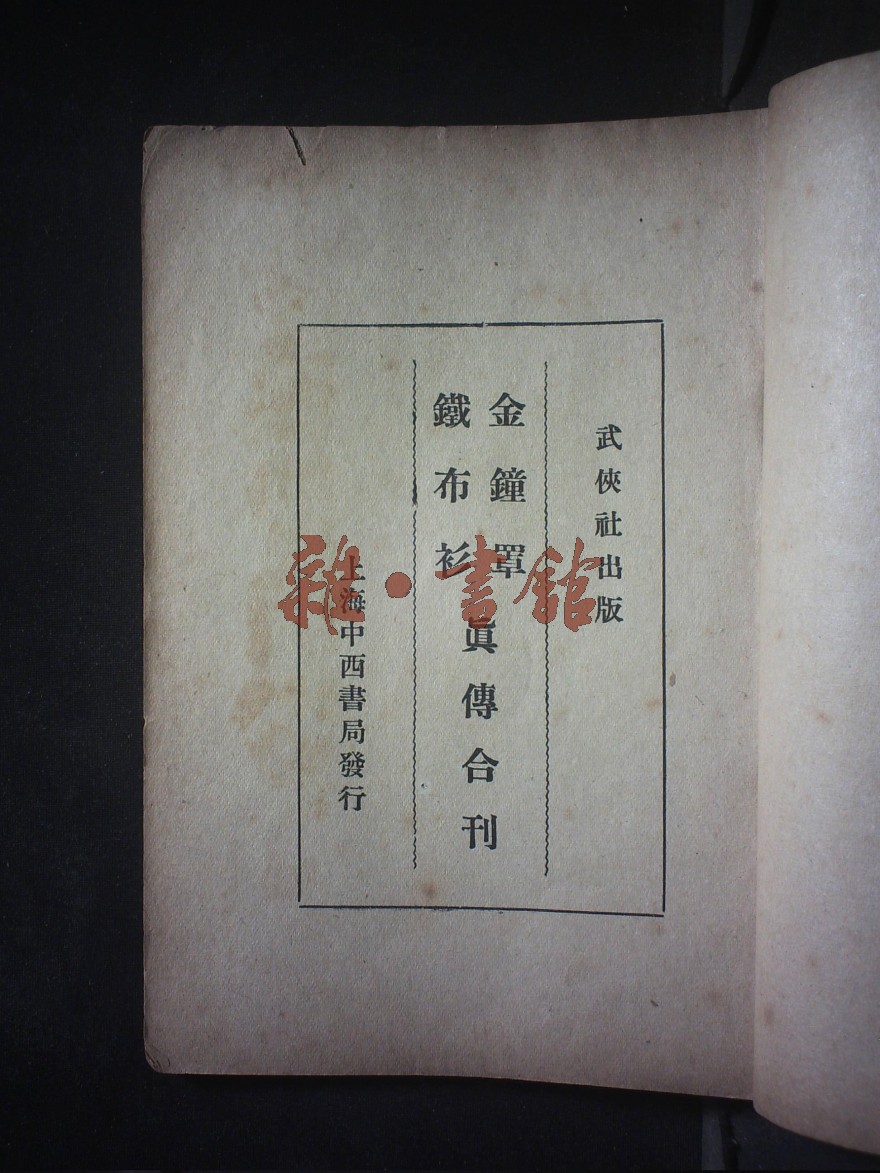 武俠社出版
金鐘罩
鐵布衫
眞傳合刊
上海中西書局發行
雜·書館